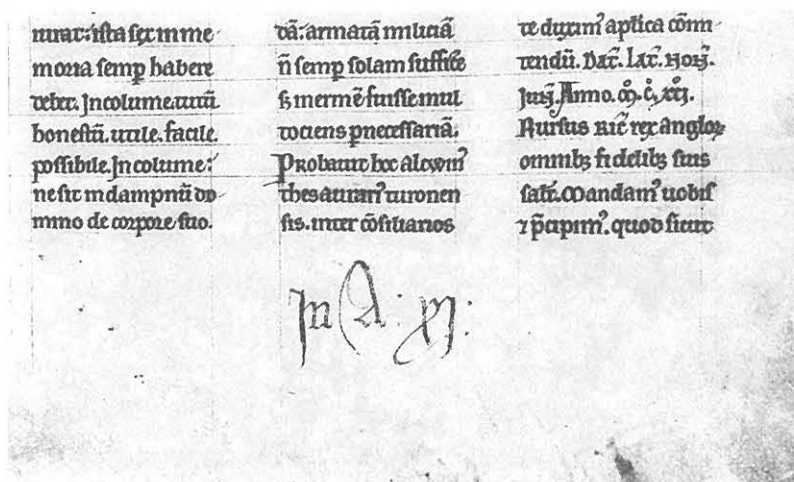 iurat: ista sex in me
moria semp habere
debet. Incolume. tutū
honestū. utile. facile
possibile. Incolume:
ne sit in dampnū do
mino de corpore suo.
dā: armatā miliciā
n̄ semp solam suffice
inermē fuisse mul
tociens pnecessariā.
Probauit hoc
thesaurari᾽ turonen
sis. inter ɔ̄siliarios
te duxim᾽ aplica cōm
tendū. Dat̄. Lat̄.
Anno. ꝏ. c̊. xxi.
Rursus Ric̄ rex angloꝝ
omnibꝫ fidelibꝫ suis
salt̄. Mandam᾽ uobis
⁊ p̄cipim᾽. quod sicut
In A: xj: